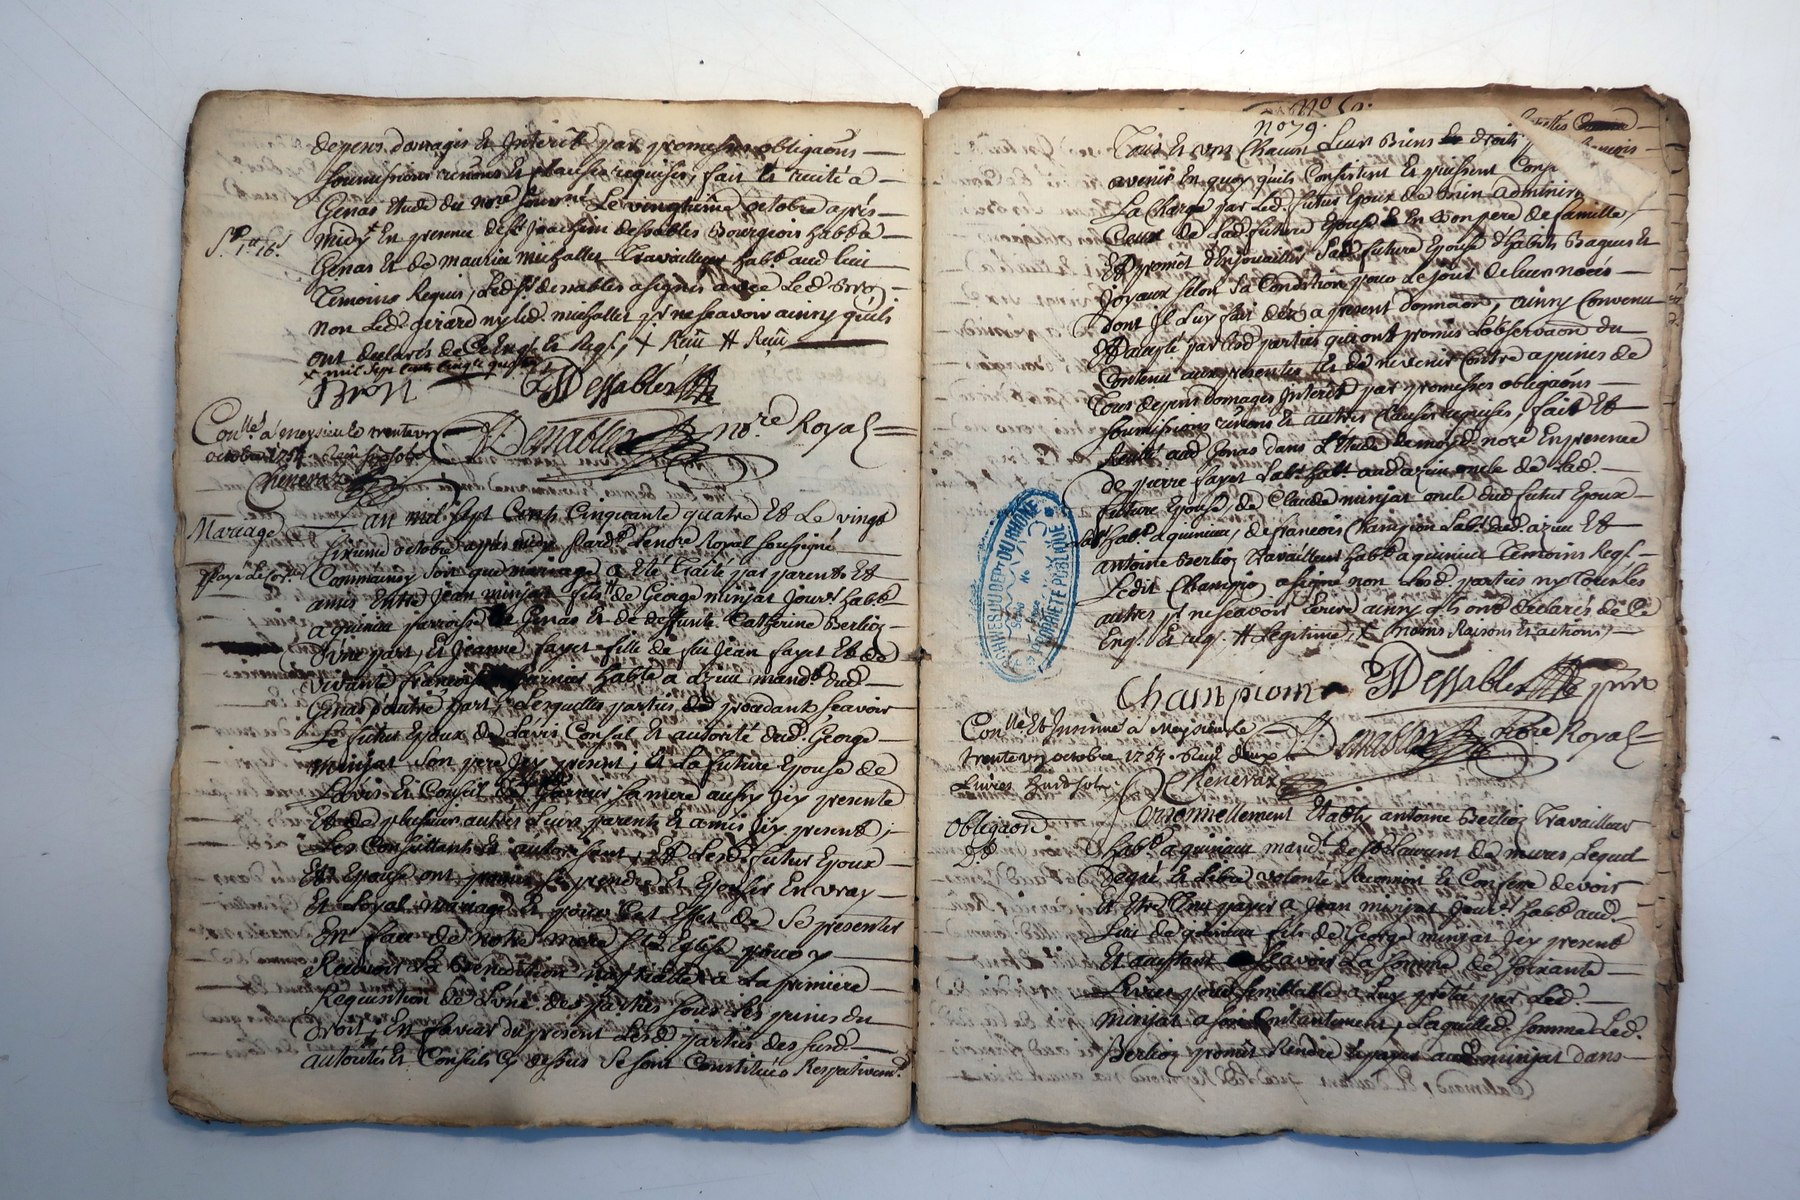 depens domages et Interêts par promesses obligaõns
soumissions renõns et clauses requises, fait et recité a
Genas etude du nore soussigné Le vingtieme octobre aprés
midy ⁺ En presence de sr Joachim desnables Bourgeois habt a
Genas Et de maurice michallet Travailleur habt aud lieu
Temoins Requis, Led sr desnables a signé avec Led Bron
non Led. girard ny led. michallet pr ne scavoir ainsy qu'ils
ont declarés de Ce Enqs et Reqs, + Raÿé # Raÿé
+ mil sept cents cinqte quatre
Bron Desnables
Conllé a meysieu le trente un
octobre 1754
Cheneraz
Desnables nore Royal
Mariage
L'an mil sept Cents Cinquante quatre Et Le vingt
sixieme octobre aprés midy pardt Le nore Royal soussigné
Comme ainsy soit que mariage a eté traité par parents Et
amis Entre Jean minjat fils de George minjat Jourr habt
a quineu parroisse de Genas Et de deffunte Catherine Berlioz
D'une part, Et Jeanne fayet fille de feu Jean fayet Et de
vivante francoise garnier habte a azieu mandt dud
Genas d'autre part, Lesquelles parties procedant scavoir
Le futur Epoux de L'avis Conseil Et autorité dud. George
minjat son pere Icy present, Et La future Epouse de
L'avis Et Conseil de lad garnier sa mere aussy Icy presente
Et de plusieurs autres Leurs parents Et amis Icy presents,
Les Conseillants Et autorisant, Lesd. futur Epoux
Et Epouse ont promis se prendre Et Epouser En vray
Et Loyal mariage Et pour Cet Effet de se presenter
En face de notre mere ste Eglise pour y
Recevoir La Benediction nuptialle a La premiere
Requisition de L'une des parties sous Les peines du
Droit, En faveur du present Lesd parties des susd.
autorités Et Conseils Cy dessus se sont Constitués Respectivemt
no 79.
Tous Et uns Chacun Leurs Biens et droits
avenir En quoy qu'ils Consistent Et puissent
La Charge par Led. futur Epoux de Bien
Ceux de Lad future Epouse En Bon pere de famille,
Et promet d'Enjouailler Lad future Epouse d'habits Bagues Et
Joyaux selon sa Condition pour Le jour de Leur noces
dont Il Luy fait dés a present donnaõn, ainsy Convenu
Et accepté par Lesd parties qui ont promis L'observaõn du
Contenu aux presentes et de ne venir Contre a peines de
Tous depens domages Interêts par promesses obligaõns
soumissions renõns Et autres Clauses requises, fait Et
Recité aud Genas dans L'Etude de moyd. nore En presence
de pierre fayet Labr habt aud azieu oncle de Lad.
future Epouse, de Claude minjat oncle dud futur Epoux
habt a quineu, de francois Champion Labr aud azieu Et
antoine Berlioz travailleur habt a quineu Temoins Reqs
Ledit Champion a signé non Lesd. parties ny Tous Les
autres pr ne scavoir Ecrire ainsy qu'ils ont declarés de Ce
Enqs Et reqs # Legitime, noms Raisons Et actions
Champiom Desnables
Conllé Et Insinué a Meysieu le
trente un octobre 1754. Reçu deux
Livres huit sols
Cheneraz
Desnables nore Royal
Obligaõn
Personnellement Etably antoine Berlioz Travailleur
habt a quineu mandt de st Laurent de mures, Lequel
de gré Et Libre volonté Reconnoit Et Confesse devoir
Et Etre tenu payer a Jean minjat Jourr habt aud.
lieu de quineu fils de George minjat Icy present
Et acceptant scavoir La somme de soixante
Livres pour semblable a Luy pretée par Led.
minjat a foy Contantement, Laquelle somme Led.
Berlioz promet Rendre Et payer aud minjat dans
ARCHIVES DU DEPT DU RHONE
PROPRIETE PUBLIQUE